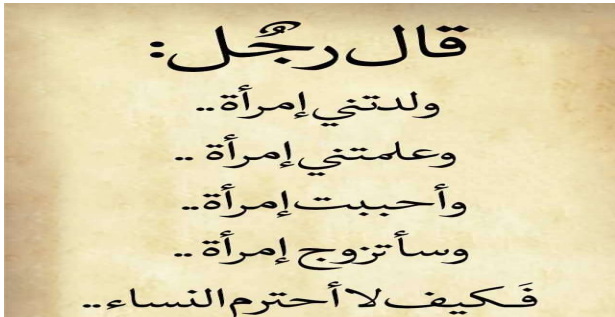 قال رجُل:
ولدتني إمرأة..
وعلمتني إمرأة ..
وأحببت إمرأة..
وسأتزوج إمرأة ..
فَكيف لا أحترم النساء..